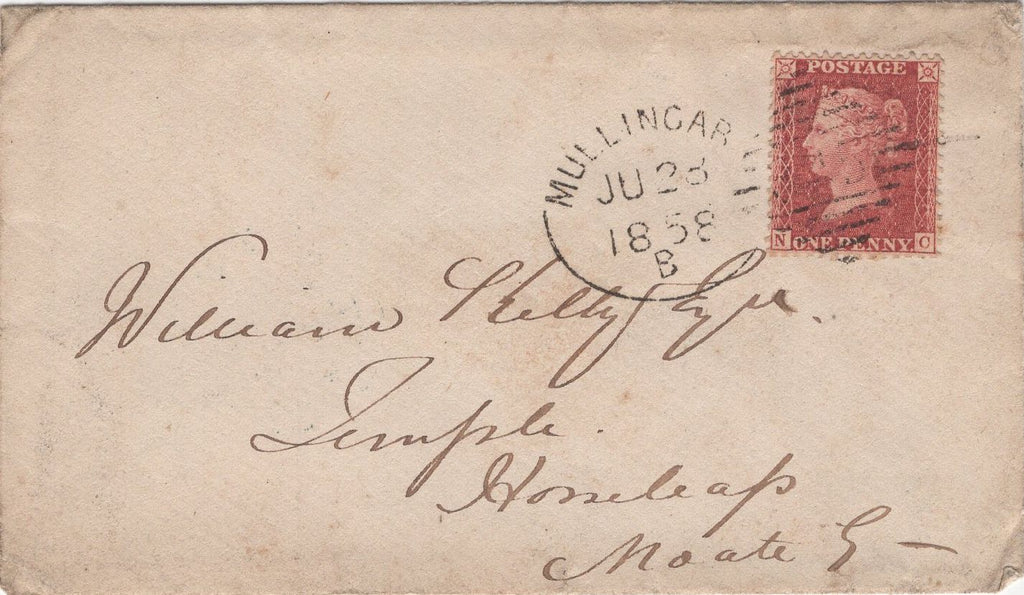 POSTAGE
N ONE PENNY C
MULLINGAR
JU 23
1858
B
William Kelly Esqre.
Temple.
Horseleap
Moate